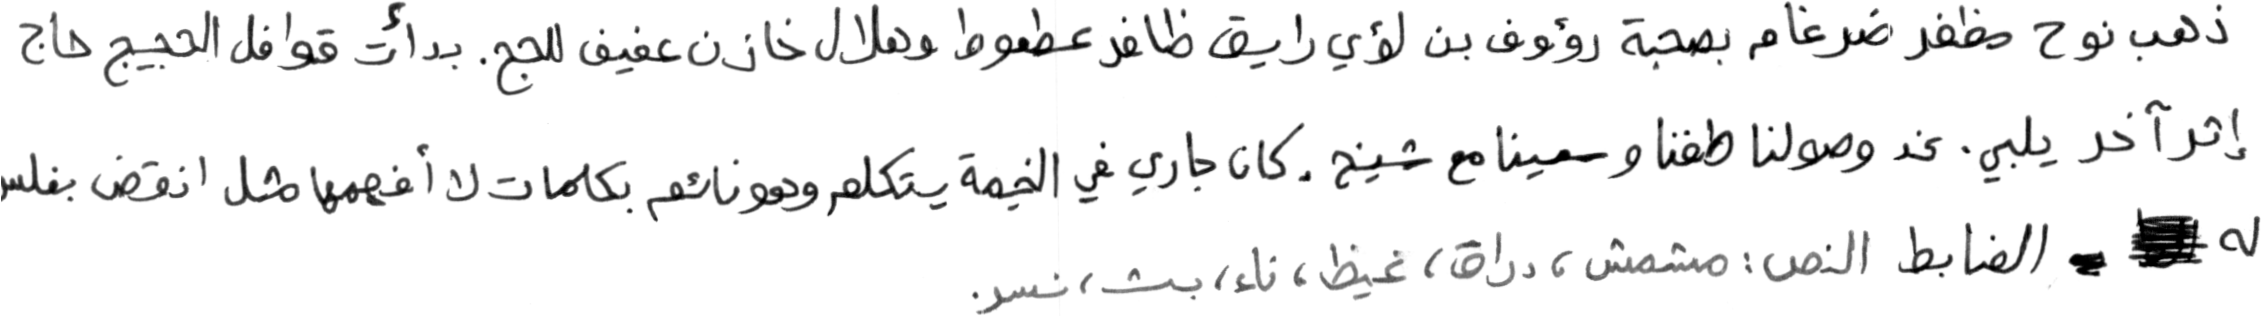 ذهب نوح مظفر ضرغام بصحبة رؤوف بن لؤي رايق ظافر عطعوط وهلال خازن عفيف للحج. بدأت قوافل الحجيج حاج
إثر آخر يلبي. عند وصولنا طفنا وسعينا مع شيخ. كان جاري في الخيمة يتكلم وهو نائم بكلمات لا أفهمها مثل انقض بفلس
له الضابط النص: مشمش، دراق، غيظ، ناء، بث، نسر.